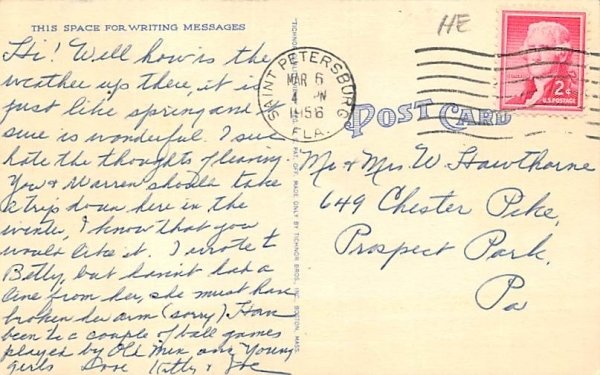 THIS SPACE FOR WRITING MESSAGES
Hi! Well how is the
weather up there, it is
just like spring and
sure is wonderful. I sure
hate the thoughts of leaving
You & Warren should take
a trip down here in the
winter, I know that you
would like it. I wrote to
Betty, but havint had a
line from her, she must have
broken her arm (sorry) Have
been to a couple of ball games
played by Old Men, and Young
girls Love Kitty & Joe
HE
SAINT PETERSBURG
MAR 6
4 PM
1956
FLA.
2¢
U.S. POSTAGE
POST CARD
Mr & Mrs. W. Hawthorne
649 Chester Pike,
Prospect Park,
Pa
MADE ONLY BY TICHNOR BROS., INC., BOSTON, MASS.